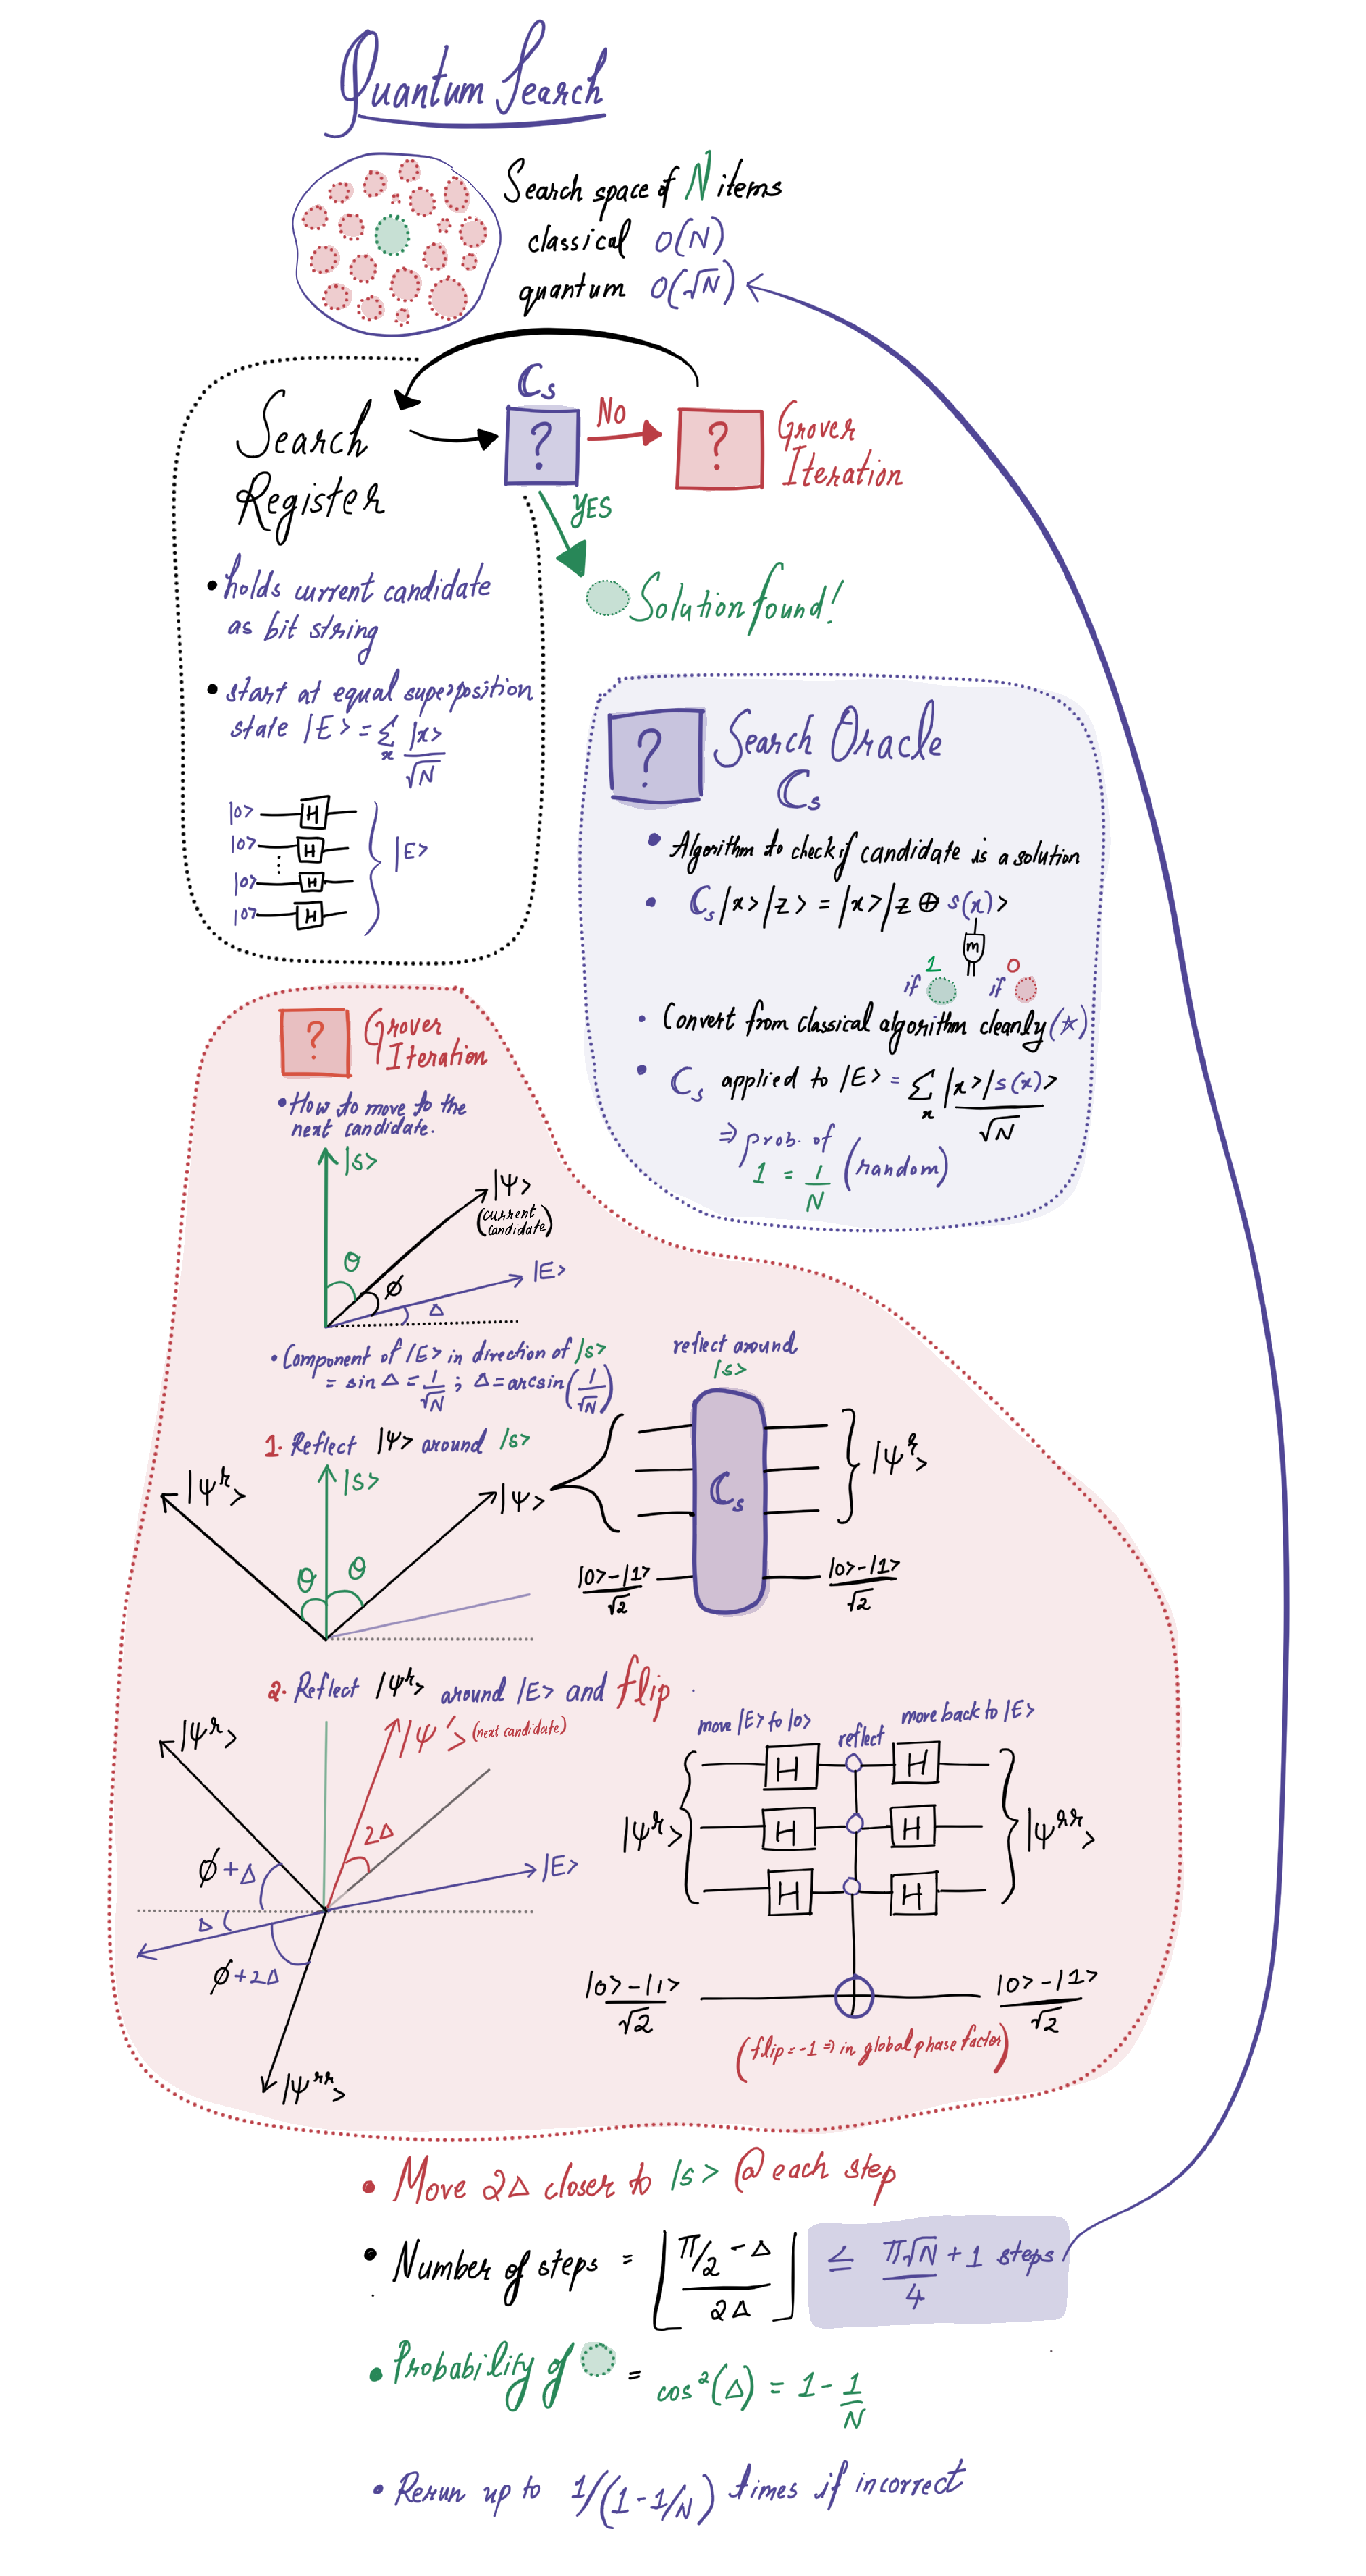 Quantum Search
Search space of N items
classical O(N)
quantum O(√N)
Search
Register
• holds current candidate
as bit string
• start at equal superposition
state |E> = Σ_x |x>/√N
|0> H
|0> H
⋮
|0> H
|0> H
|E>
ℂs
?
No
?
Grover
Iteration
YES
Solution found!
? Search Oracle
ℂs
• Algorithm to check if candidate is a solution
• ℂs |x>|z> = |x>|z ⊕ s(x)>
m
1 0
if if
• Convert from classical algorithm cleanly (*)
• ℂs applied to |E> = Σ_x |x>|s(x)>/√N
⇒ prob. of
1 = 1/N (random)
? Grover
Iteration
• How to move to the
next candidate.
|s>
|Ψ>
(current
candidate)
θ
ϕ
|E>
Δ
• Component of |E> in direction of |s>
= sin Δ = 1/√N ; Δ = arcsin(1/√N)
1. Reflect |Ψ> around |s>
|Ψ^r>
|s>
|Ψ>
θ θ
reflect around
|s>
ℂs
|Ψ^r>
|0>-|1>/√2
|0>-|1>/√2
2. Reflect |Ψ^r> around |E> and flip
|Ψ^r>
|Ψ'> (next candidate)
2Δ
ϕ+Δ
|E>
Δ
ϕ+2Δ
|Ψ^rr>
move |E> to |0>
reflect
move back to |E>
|Ψ^r>
H H
H H
H H
|Ψ^rr>
|0>-|1>/√2
|0>-|1>/√2
(flip = -1 ⇒ in global phase factor)
• Move 2Δ closer to |s> @ each step
• Number of steps = ⌊(π/2 - Δ)/2Δ⌋ ≤ π√N/4 + 1 steps
• Probability of = cos²(Δ) = 1 - 1/N
• Rerun up to 1/(1-1/N) times if incorrect